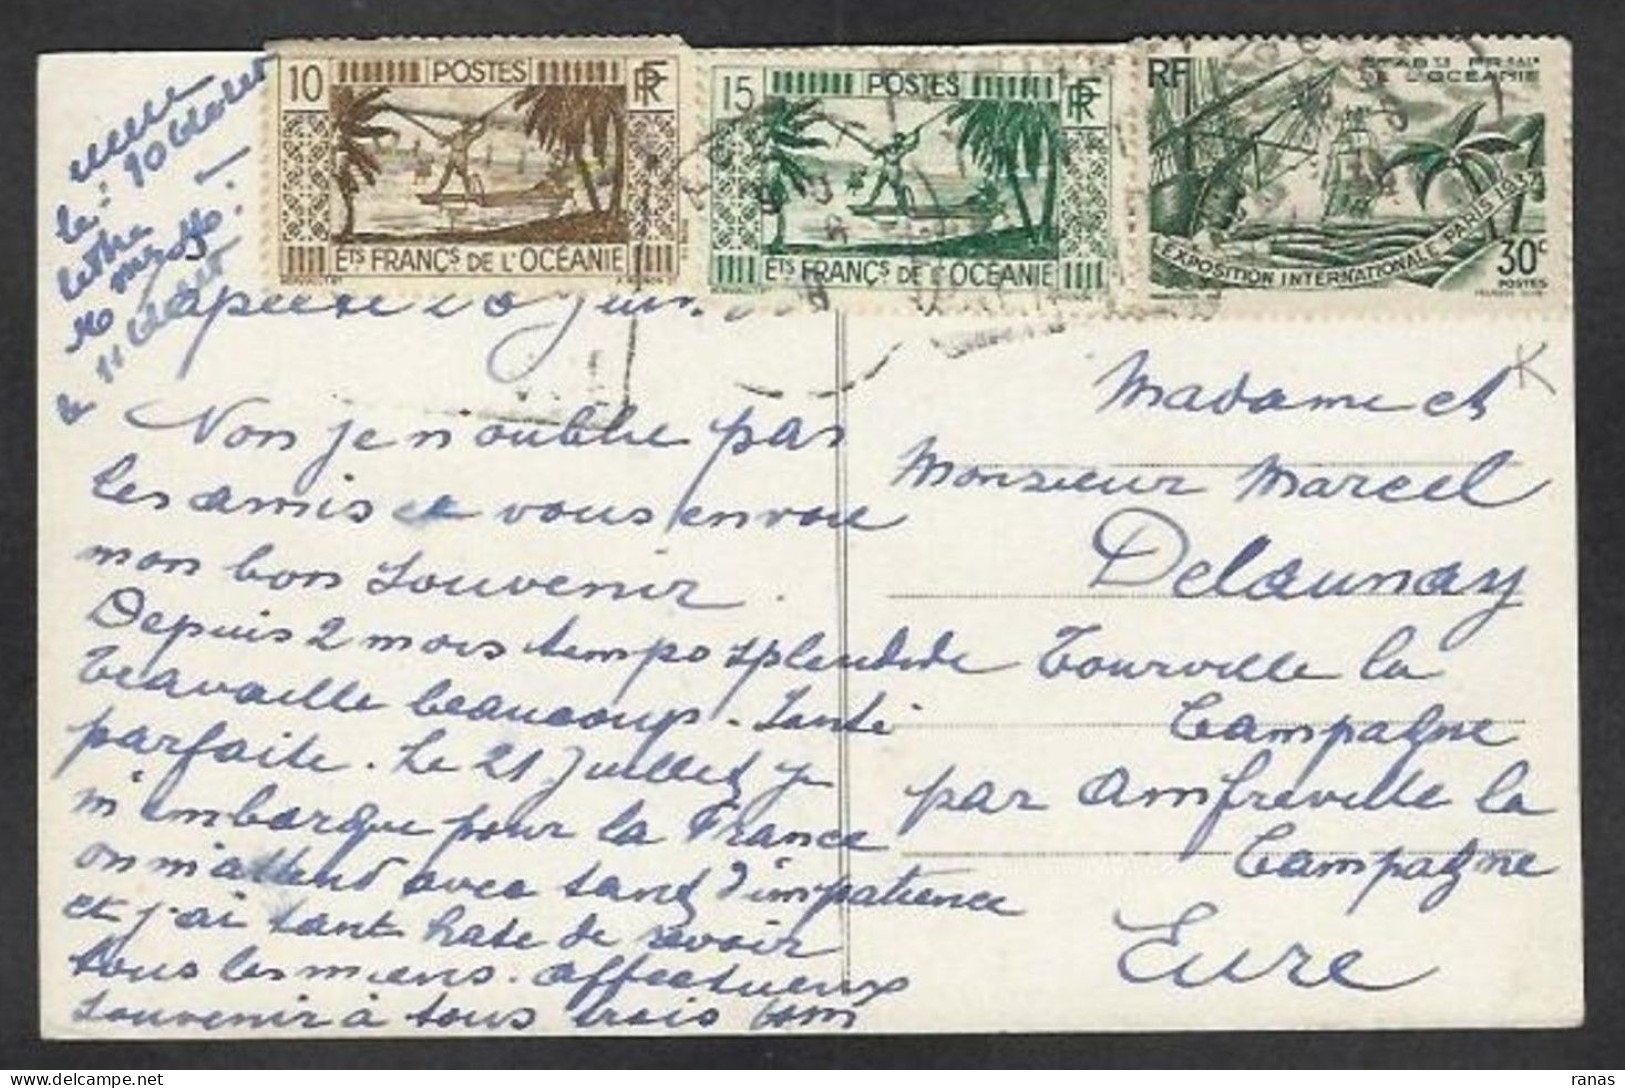 10
POSTES
RF
Ets FRANÇs DE L'OCÉANIE
15
POSTES
RF
Ets FRANÇs DE L'OCÉANIE
RF
ETABts FRçAIS
DE L'OCÉANIE
EXPOSITION INTERNATIONALE PARIS 1937
30c
POSTES
le: 10
le 11
Papeete 28 Juin
Non je n'oublie pas
les amis et vous envoie
mon bon souvenir.
Depuis 2 mois temps splendide
travaille beaucoup - Santé
parfaite. Le 21 Juillet je
m'embarque pour la France
on m'attend avec tant d'impatience
et j'ai tant hate de revoir
tous les miens. affectueux
souvenir à tous trois
Madame et
Monsieur Marcel
Delaunay
Tourville la
Campagne
par Amfreville la
Campagne
Eure
ranas